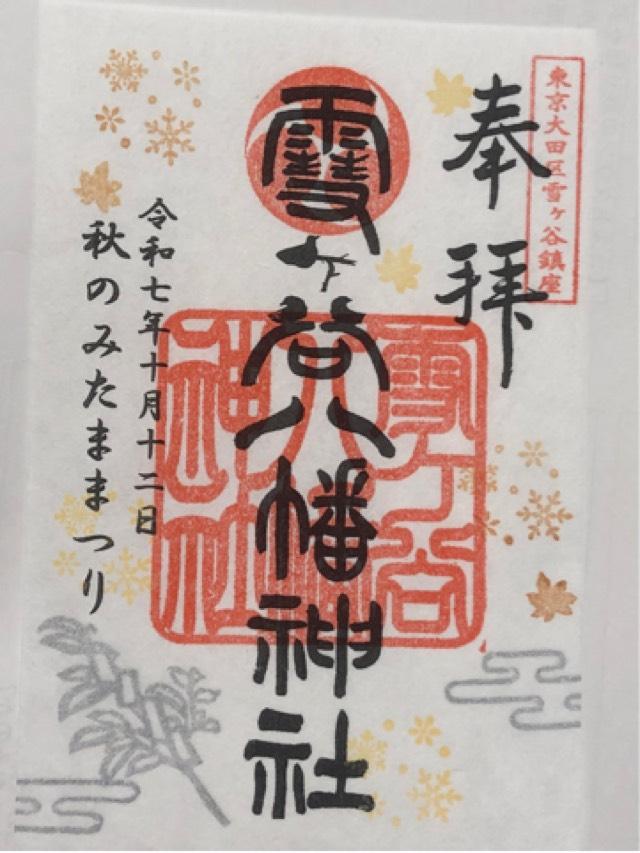 東京大田区雪ヶ谷鎮座
奉拝
雪ヶ谷八幡神社
雪ヶ谷
八幡
神社
令和七年十月十二日
秋のみたままつり